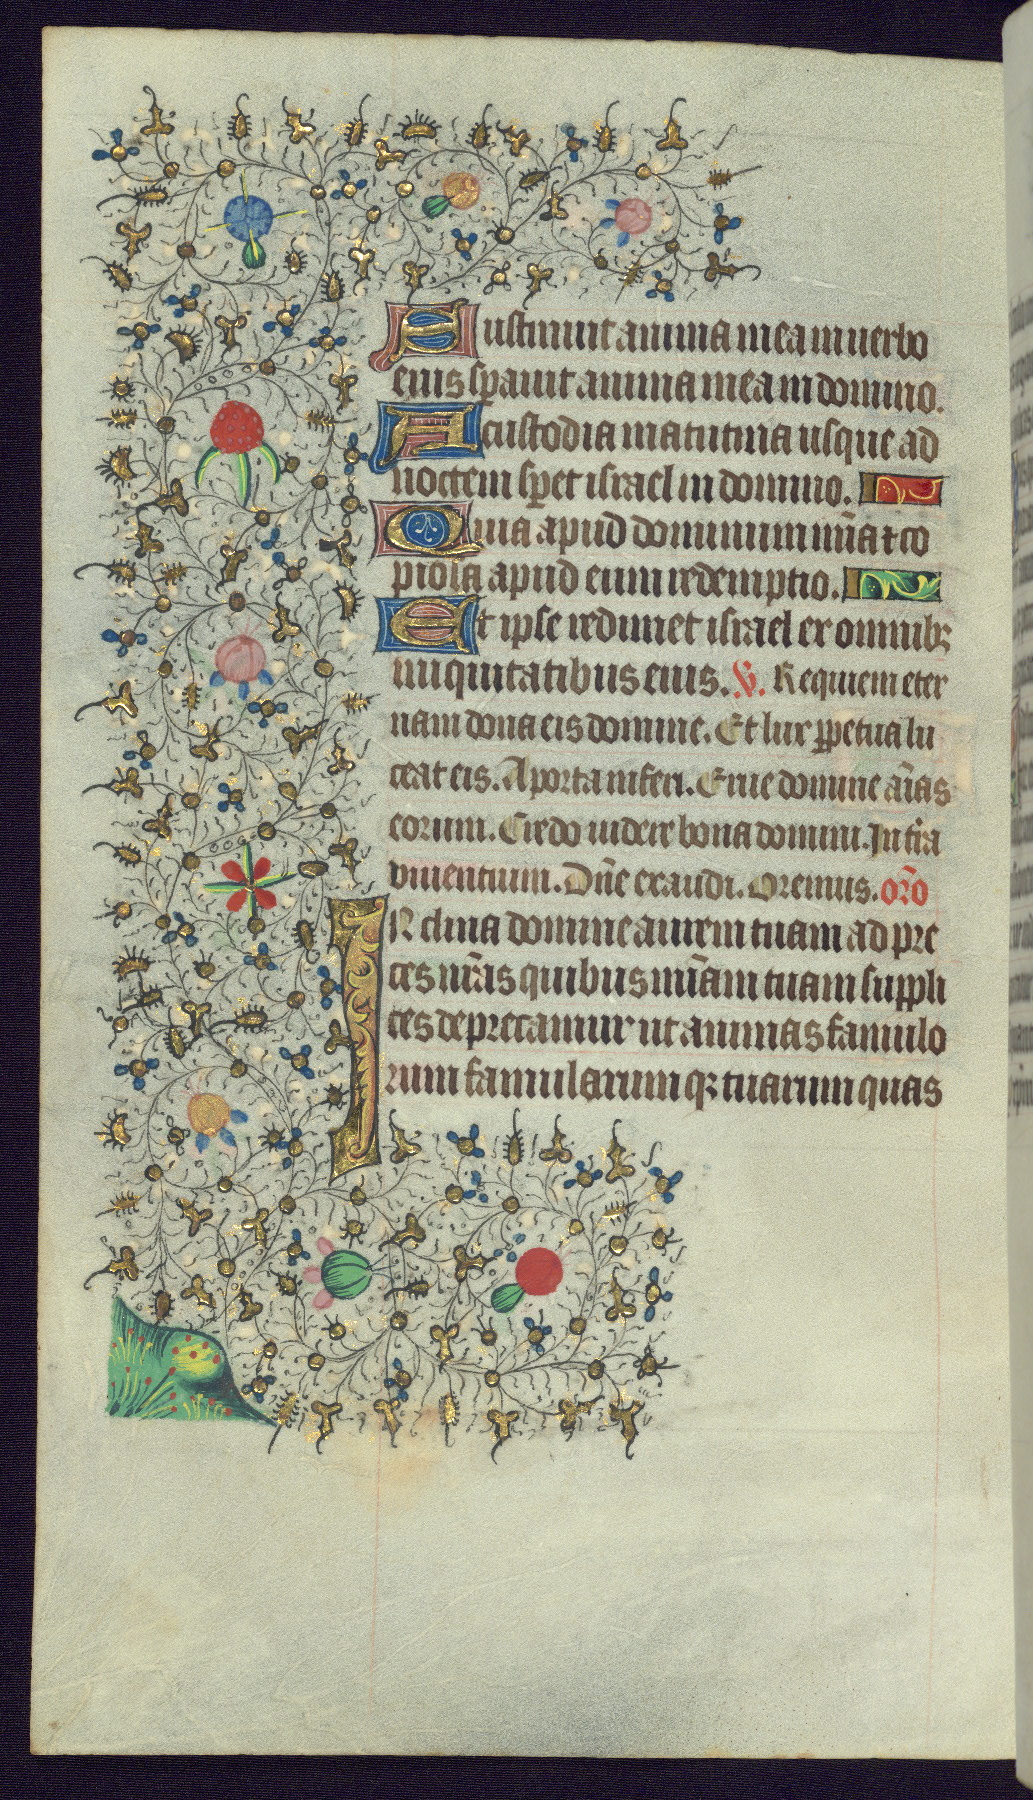 Sustinuit anima mea in uerbo
eius sperauit anima mea in domino.
A custodia matutina usque ad
noctem speret israel in domino.
Quia apud dominum mĩa et co
piosa apud eum redemptio.
Et ipse redimet israel ex omnibꝫ
iniquitatibus eius. V. Requiem eter
nam dona eis domine. Et lux ꝑpetua lu
ceat eis. A porta inferi. Erue domine aĩas
eorum. Credo uidere bona domini. In tr̃a
viuentium. Dñe exaudi. Oremus. orõ
INclina domine aurem tuam ad pre
ces nr̃as quibus mĩam tuam suppli
ces deprecamur ut animas famulo
rum famularum qꝫ tuarum quas